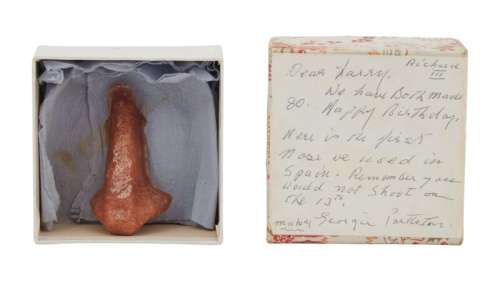 Richard
III
Dear Larry,
We have Both made
80. Happy Birthday.
Here is the first
Nose we used in
Spain. Remember you
would not Shoot on
the 13th.
makeup George Partleton.